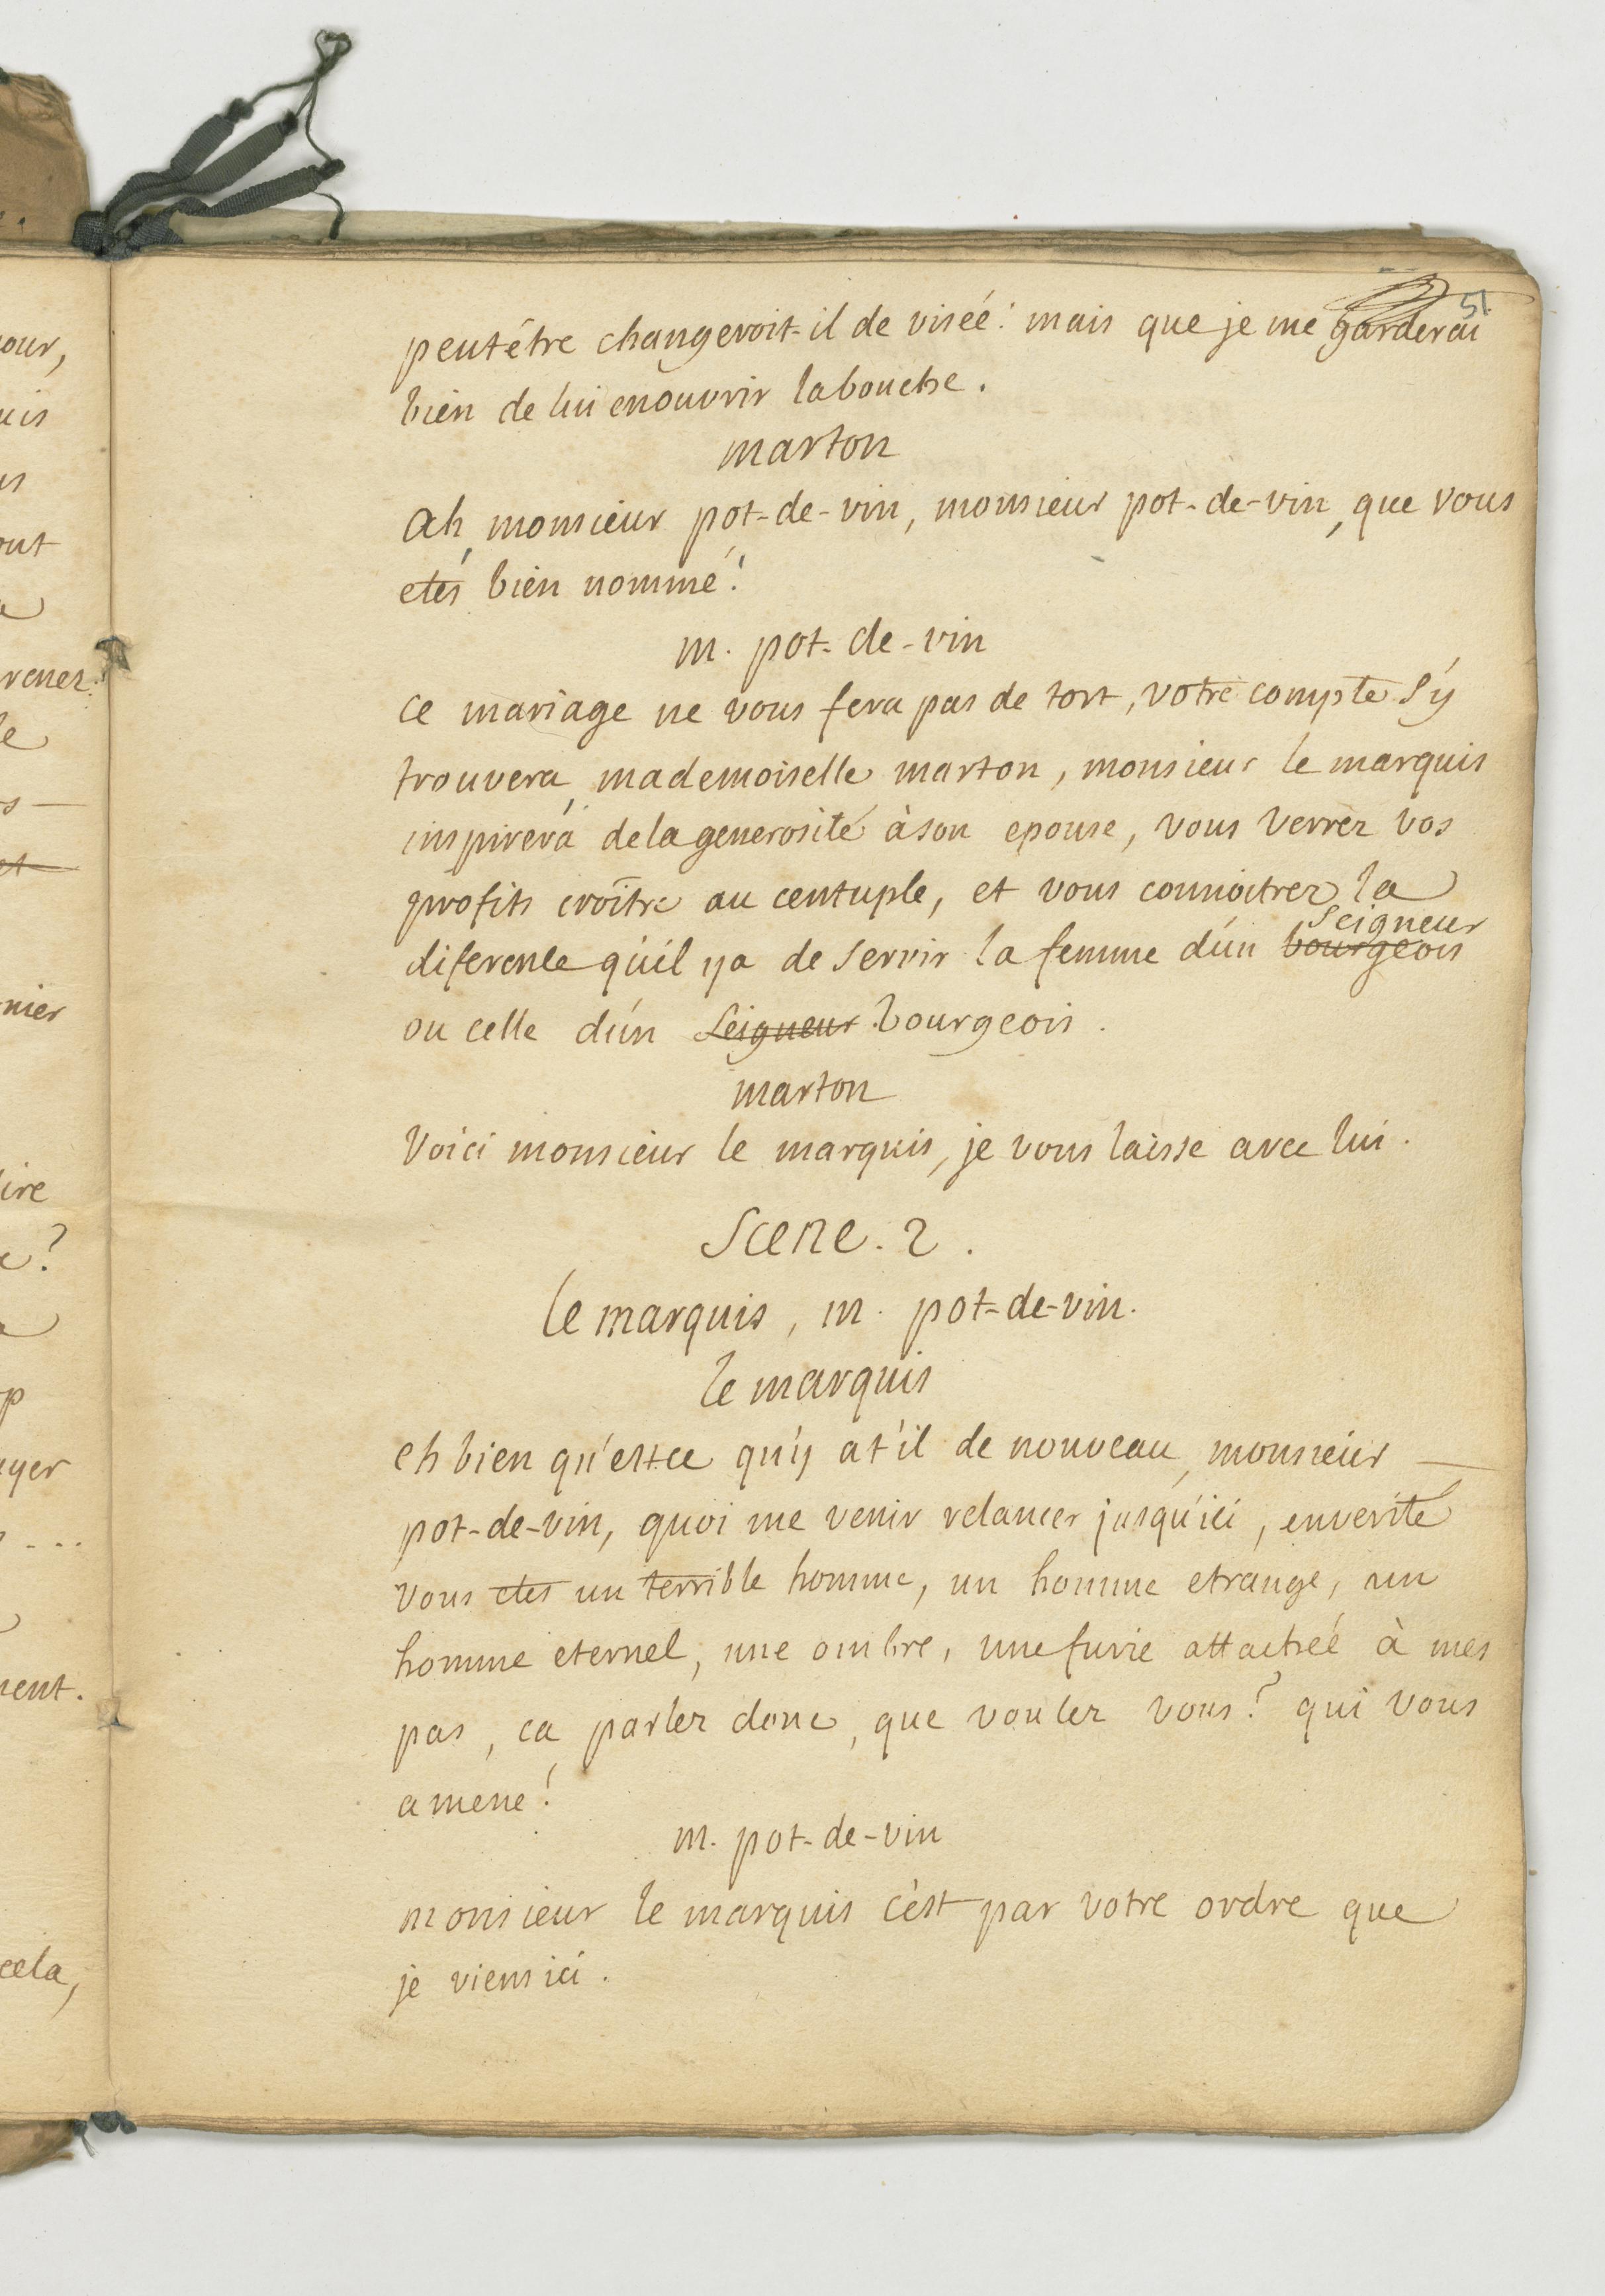 51
peutétre changeroit-il de viséé: mais que je me garderai
bien de lui enouvrir labouche.
marton
ah, monsieur pot-de-vin, monsieur pot-de-vin, que vous
etes bien nommé!
m. pot-de-vin
ce mariage ne vous fera pas de tort, votre compte s'y
trouvera, mademoiselle marton, monsieur le marquis
inspirera delagenerosité àson epouse, vous verrez vos
profits croître au centuple, et vous connoitrez la
seigneur
diference qu'il ya de servir la femme d'un bourgeois
ou celle d'un seigneur bourgeois.
marton
Voici monsieur le marquis, je vous laisse avec lui.
Scene. 2.
le marquis, m. pot-de-vin.
le marquis
eh bien qu'estce qu'y at'il de nouveau, monsieur
pot-de-vin, quoi me venir relancer jusqu'ici, enverité
vous etes un terrible homme, un homme etrange, un
homme eternel, une ombre, unefurie attachéé à mes
pas, ca parlez donc, que voulez vous? qui vous
amene!
m. pot-de-vin
monsieur le marquis c'est par votre ordre que
je viens ici.
our,
uis
out
renez
le
et
nier
ire
?
p
uyer
...
ment.
cela,